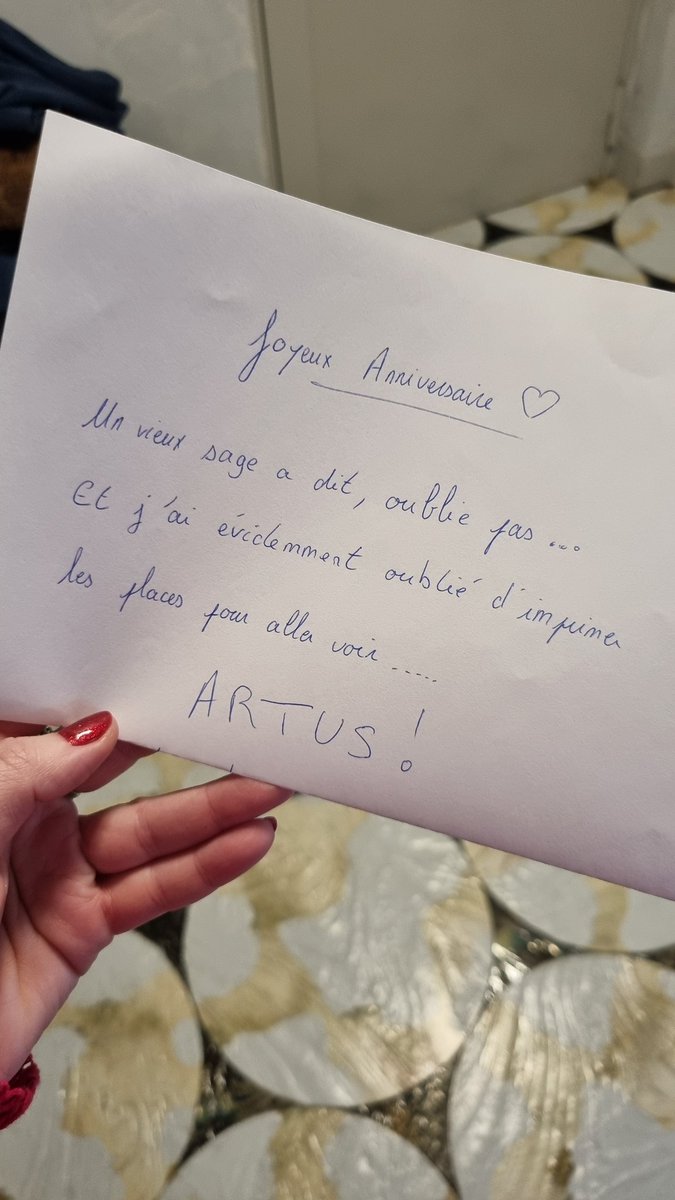 Joyeux Anniversaire ♡
Un vieux sage a dit, oublie pas ...
Et j'ai évidemment oublié d'imprimer
les places pour aller voir .....
ARTUS !